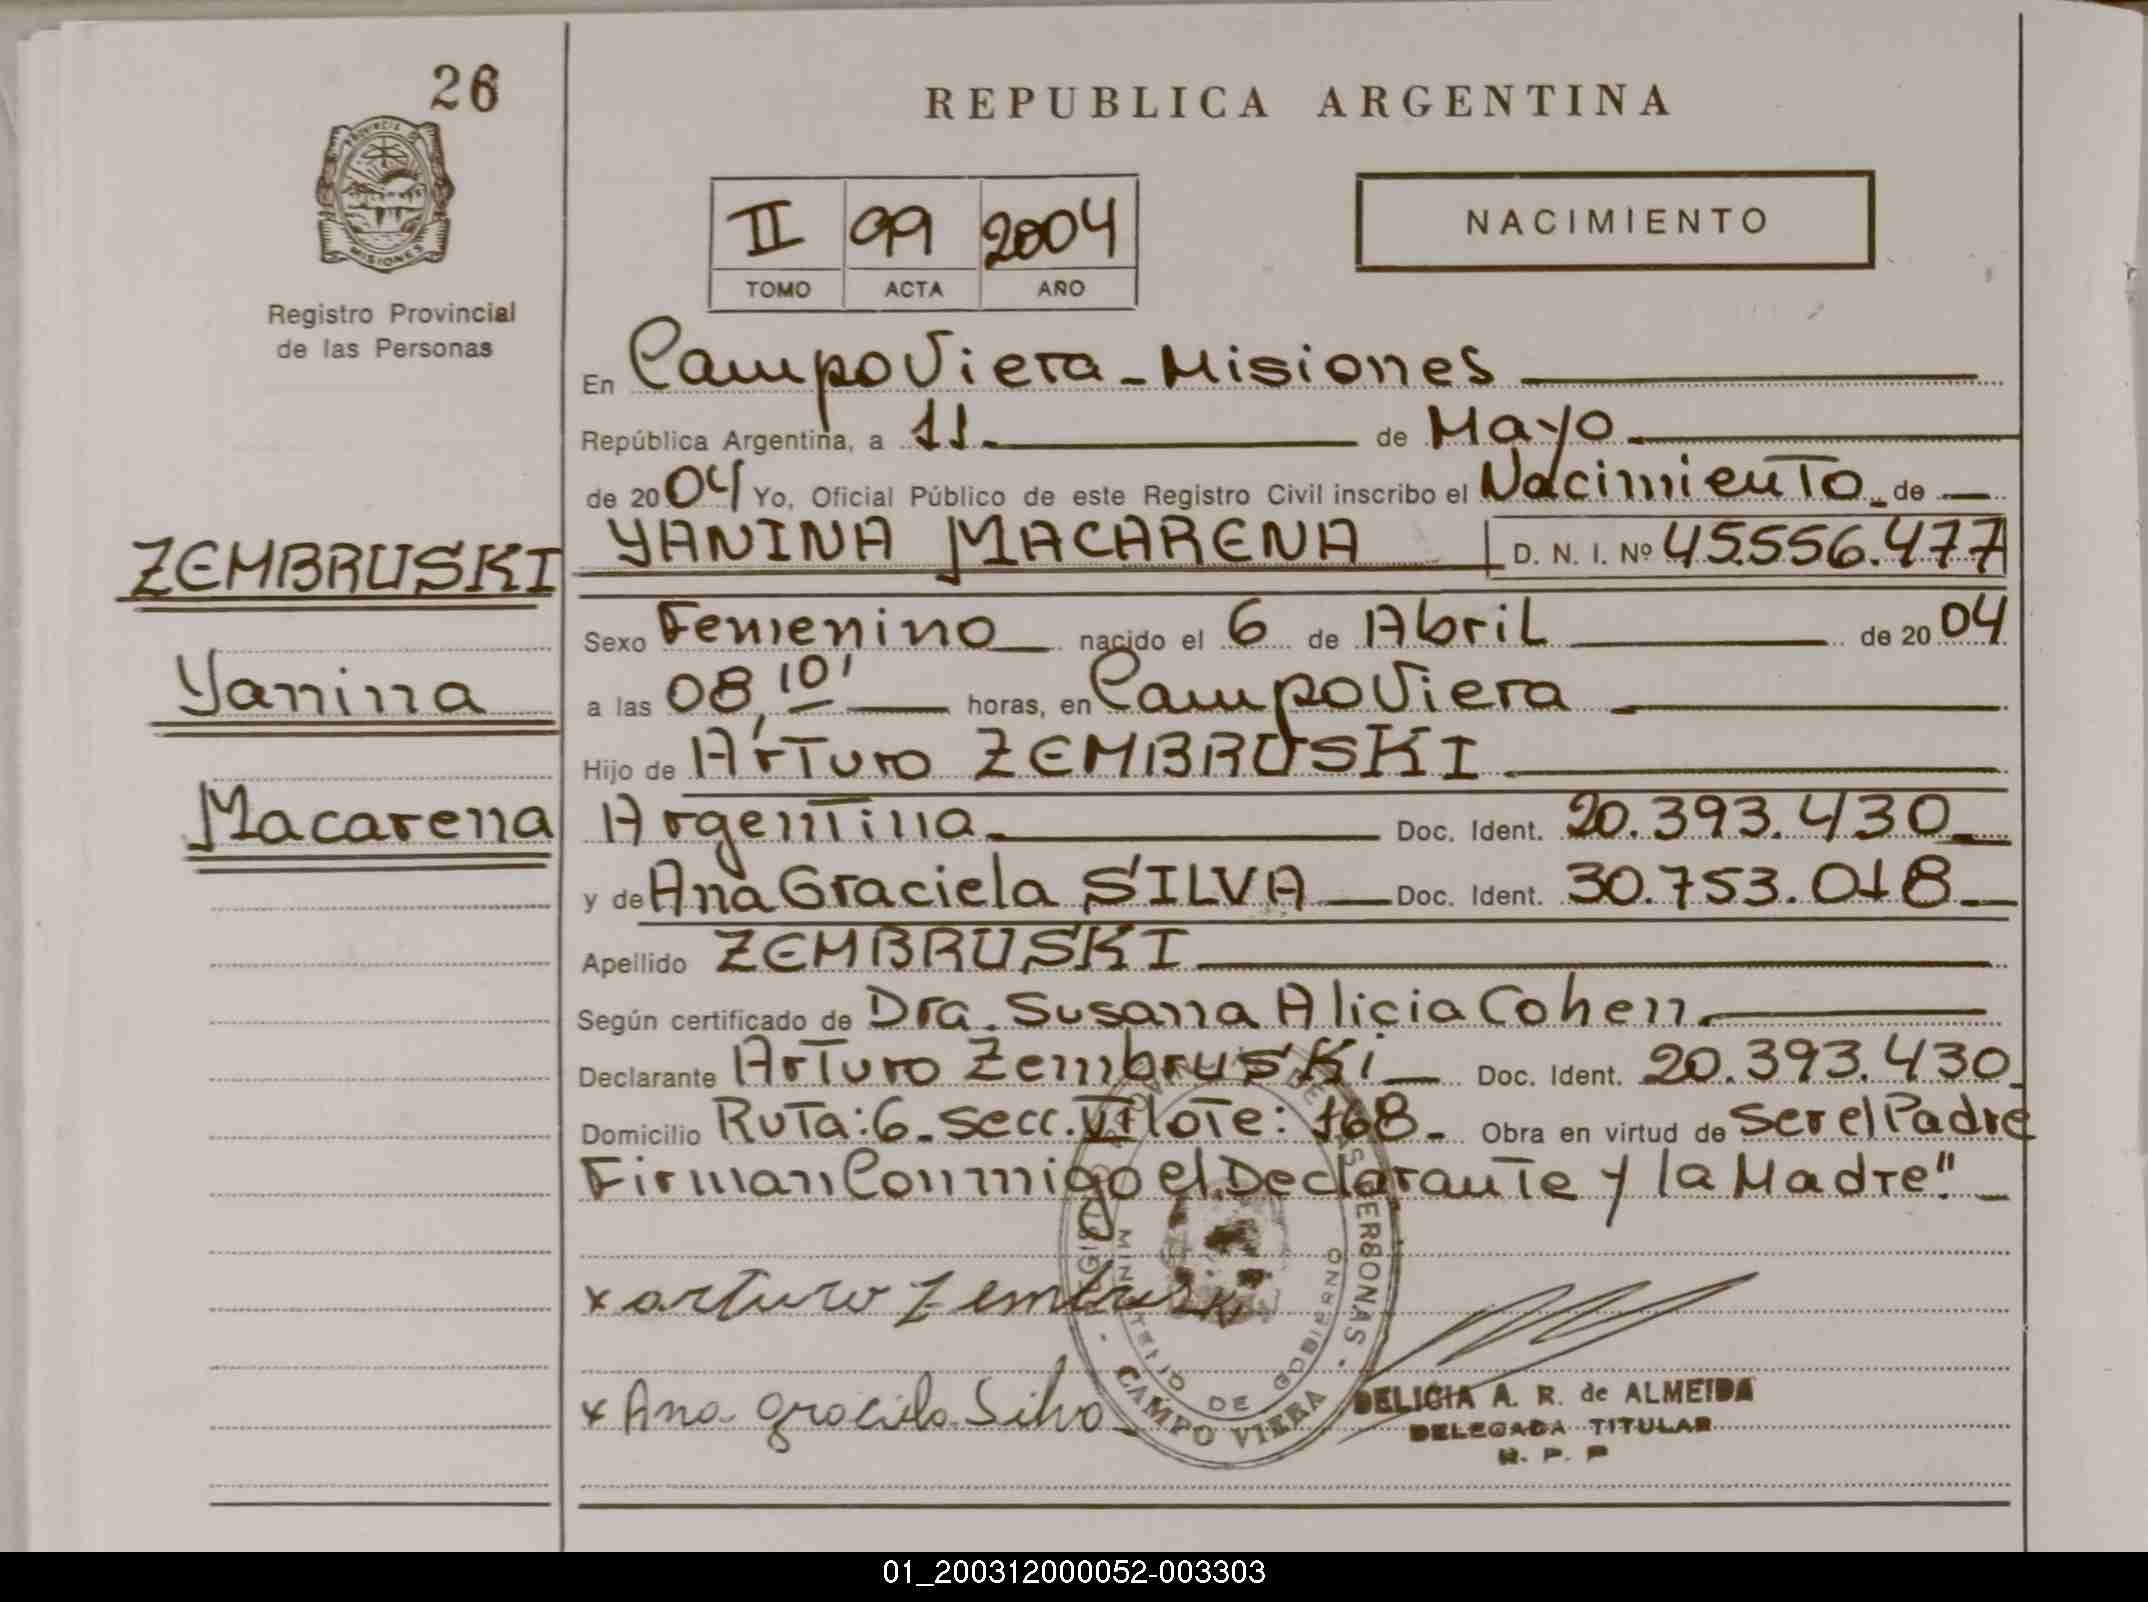 26
PROVINCIA DE
MISIONES
Registro Provincial
de las Personas
ZEMBRUSKI
Yanina
Macarena
REPUBLICA ARGENTINA
II 99 2004
TOMO ACTA AÑO
NACIMIENTO
En Campo Viera - Misiones
República Argentina, a 11 de Mayo
de 2004 Yo, Oficial Público de este Registro Civil inscribo el Nacimiento de
YANINA MACARENA D. N. I. Nº 45.556.477
Sexo Femenino nacido el 6 de Abril de 2004
a las 08,10' horas, en Campo Viera
Hijo de Arturo ZEMBRUSKI
Argentina Doc. Ident. 20.393.430
y de Ana Graciela SILVA Doc. Ident. 30.753.018
Apellido ZEMBRUSKI
Según certificado de Dra. Susana Alicia Cohen
Declarante Arturo Zembruski Doc. Ident. 20.393.430
Domicilio Ruta: 6 - secc. VI lote: 168 - Obra en virtud de ser el Padre
Firman Conmigo el Declarante y la Madre"
x arturo Zembruski
x Ana graciela Silva
MINISTERIO DE GOBIERNO
CAMPO VIERA
DELICIA A. R. de ALMEIDA
DELEGADA TITULAR
R. P. P
01_200312000052-003303